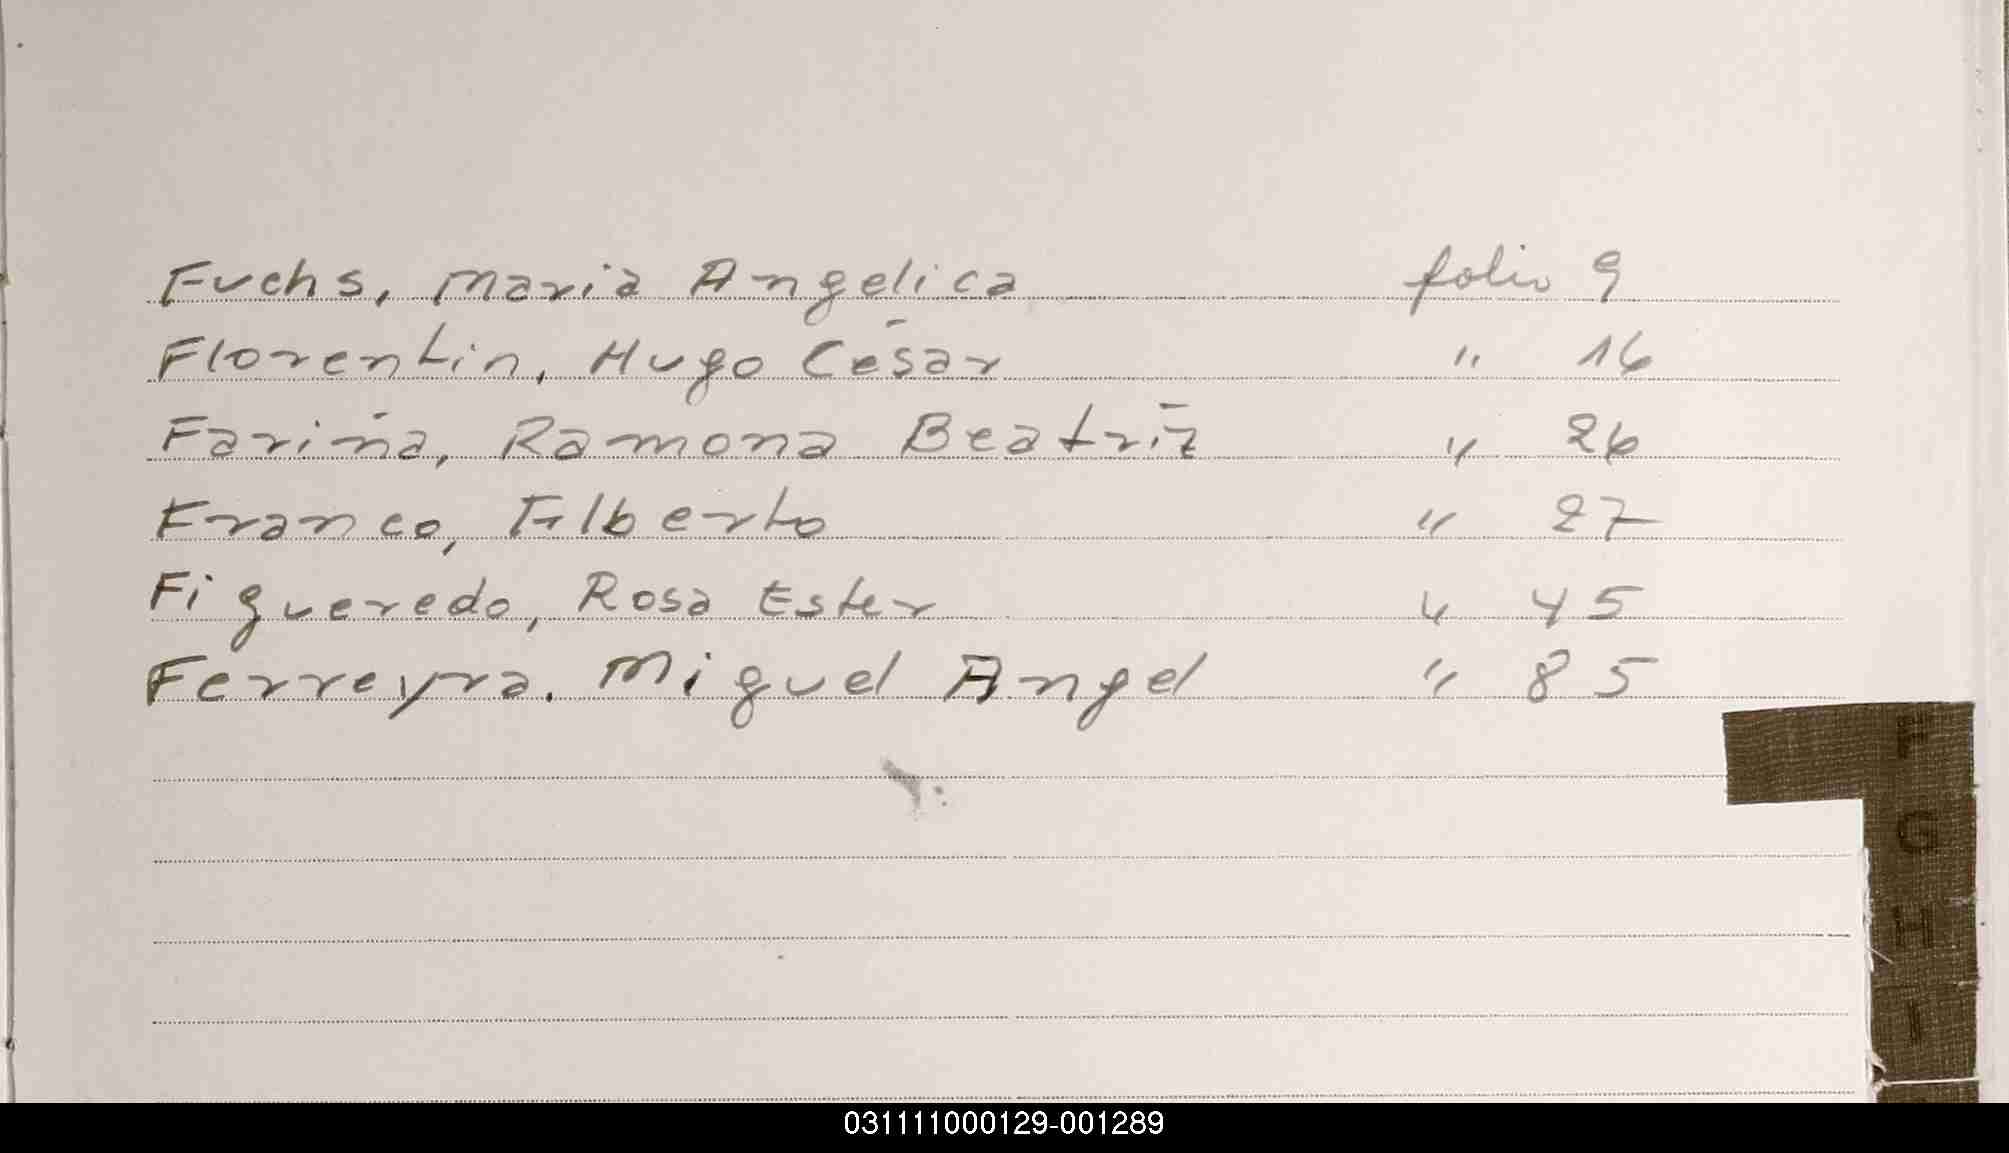 Fuchs, Maria Angelica folio 9
Florentin, Hugo César " 16
Fariña, Ramona Beatriz " 26
Franco, Alberto " 27
Figueredo, Rosa Ester " 45
Ferreyra. Miguel Angel " 85
F
G
H
I
031111000129-001289